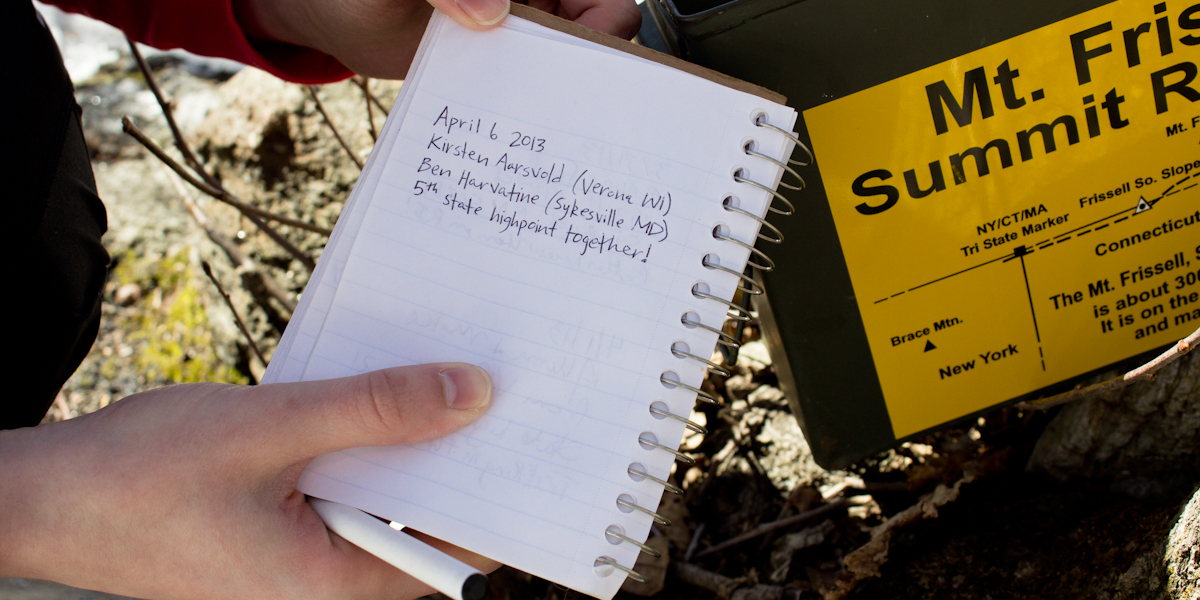 April 6 2013
Kirsten Aarsvold (Verona WI)
Ben Harvatine (Sykesville MD)
5th state highpoint together!
Mt. Fris
Summit R
Mt. F
Frissell So. Slope
NY/CT/MA
Tri State Marker
Connecticut
Brace Mtn.
New York
The Mt. Frissell, S
is about 300
It is on the
and ma